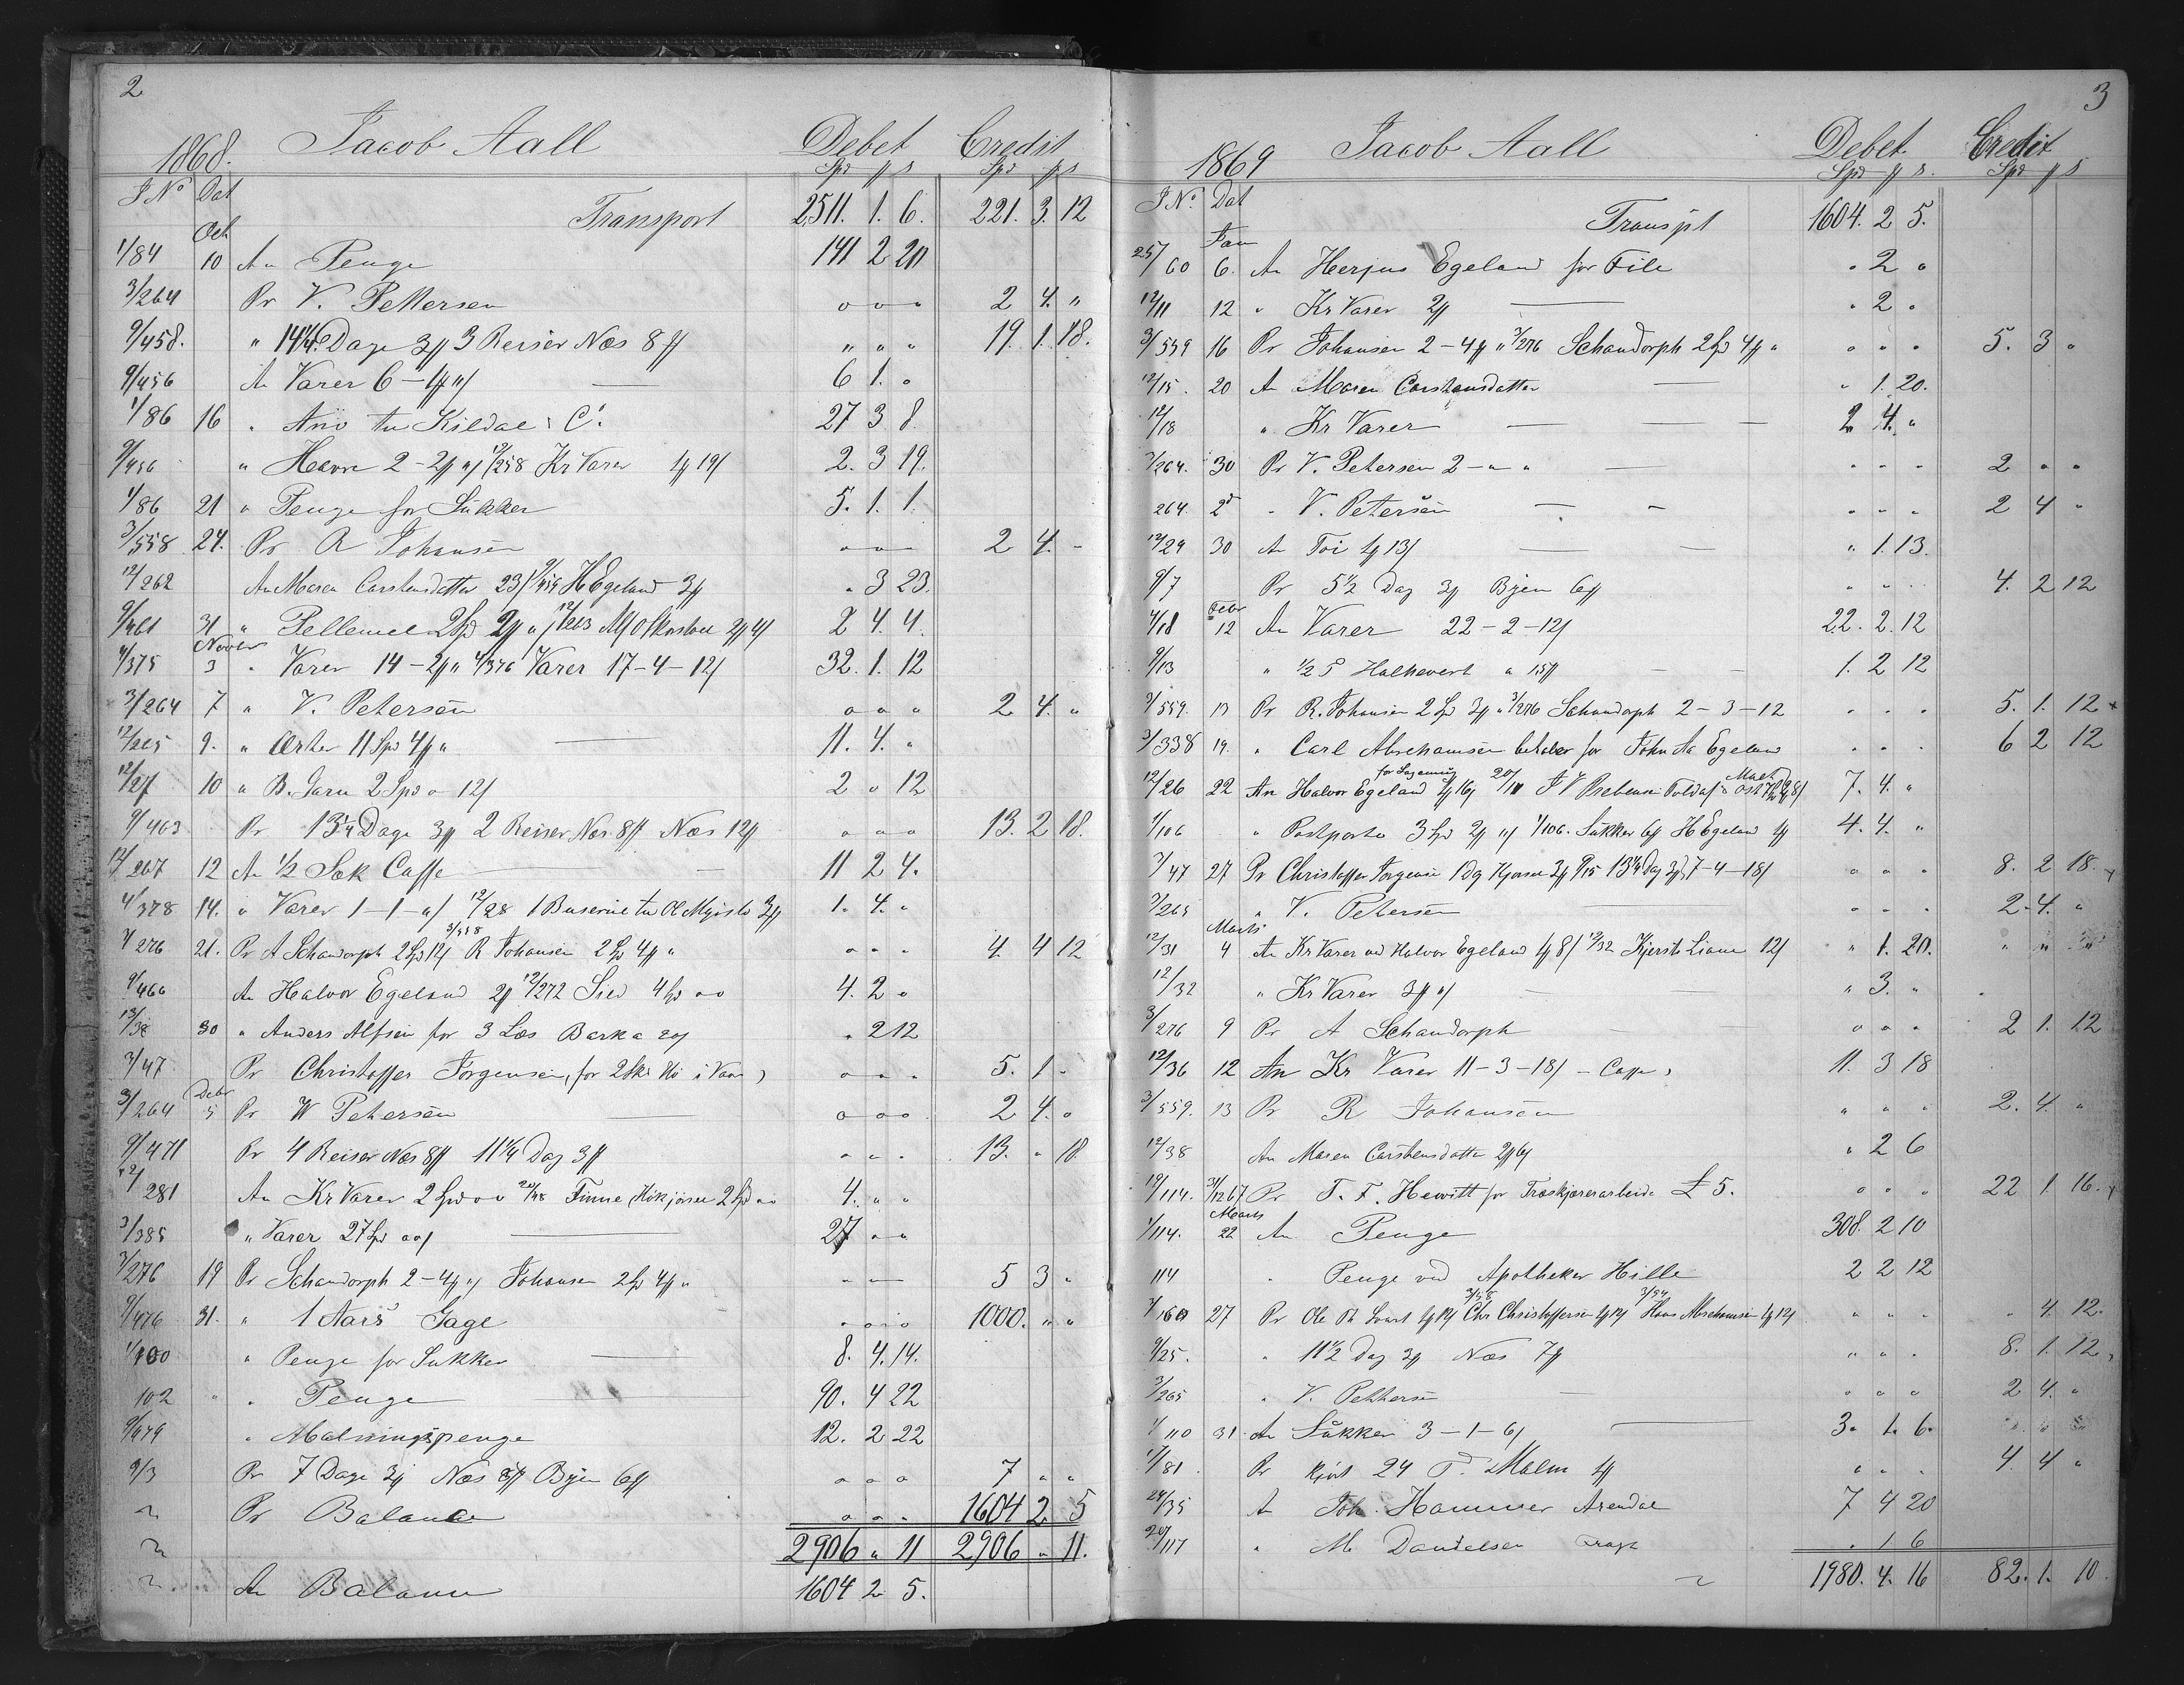 2
1868. Jacob Aall Debet Credit
Spd ß s Spd ß s
J No Dat
Transport 2511. 1. 6. 221. 3. 12
Oct
1/84 10 An Penge 141 2 20
3/264 Pr V. Pettersen " " " 2 4. "
9/458. " 14 1/4 Dage 3ß 3 Reiser Næs 8ß " " " 19. 1. 18.
9/456 An Varer 6-1ß"/ 6 1. "
1/86 16 " Anv til Kildal & C. 27 3 8.
9/456 " Havre 2-2ß"/ 12/258 Kr Varer 1ß 19/ 2. 3 19.
1/86 21 " Penge for Sukker 5. 1. 1.
3/558 24. Pr R Johansen " " " 2 4. "
12/262 An Maren Carstensdatter 23/ 9/459 H Egeland 3ß " 3 23.
9/461 31 " Pellemel 2Spd 2ß"/ 12/263 2ß 4/ 2 4. 4.
Novbr
4/375 3 " Varer 14-2ß" 4/376 Varer 17-4-12/ 32. 1. 12
3/264 7 " V. Petersen " " " 2 4. "
12/265 9. " Erter 11 Spd 4ß" 11. 4. "
12/27 10 " B. Garn 2 Spd " 12/ 2 " 12
9/463 Pr 13 1/4 Dage 3ß 2 Reiser Næs 8ß Næs 12ß " " " 13. 2 18.
12/267 12 An 1/2 Sæk Caffe 11 2 4.
4/378 14. " Varer 1-1-"/ 12/28 1 Buserue til Ol Myrstø 3ß 1. 4. "
3/276 21. Pr A Schandorph 2Spd 12/ 3/558 R Johansen 2Spd 4ß " " " " 4. 4 12
9/466 An Halvor Egeland 2ß 12/272 Sild 4 Spd "" 4. 2 "
13/38 30 " Anders Alfsen for 3 Læs Bark a 20/ " 2 12
3/47 Pr Christoffer Jorgensen, for 2 Ski Hø i Vaar, " " " 5. 1 "
Debr
3/264 5 Pr W Petersen " " " 2 4. "
9/471 Pr 4 Reiser Næs 8ß 11 1/4 Dag 3ß " " " 13. " 18
12/281 An Kr Varer 2 Spd "" 20/48 Finne 2 Spd "" 4. " "
3/385 " Varer 27 Spd ""/ 27 " "
3/276 19 Pr Schandorph 2-4ß"/ Johansen 2Spd 4ß " " " " 5 3 "
9/476 31. " 1 Aars Gage " " " 1000. " "
1/100 " Penge for Sukker 8. 4. 14.
102 " " Penge 90. 4 22
9/479 " Malningspenge 12. 2 22
9/3 Pr 7 Dage 3ß Næs 8ß Byen 6ß " " " 7 " "
Pr Balance " " " 1604 2 5
2906 " 11 2906 " 11.
An Balance 1604 2 5.
3
1869 Jacob Aall Debet Credit
Spd ß s. Spd ß s
J No. Dat
Transpt 1604. 2 5.
Jan
25/60 6. An Herjus Egeland for File " 2 "
12/11 12 " Kr Varer 2ß " 2 "
3/559 16 Pr Johansen 2-4ß " 3/276 Schandorph 2Spd 4ß " " " " 5. 3 "
12/15. 20 An Maren Carstensdatter " 1. 20.
12/18 " Kr Varer 2. 4. "
3/264. 30 Pr V. Petersen 2-" " " " " 2 " "
264. 2d " V. Petersen " " " 2 4 "
12/29 30 An Toi 1ß 13/ " 1. 13.
9/7 Pr 5 1/2 Dag 3ß Byen 6ß " " " 4. 2 12
Febr
4/18 12 An Varer 22-2-12/ 22. 2. 12
9/13 " 1/2 S Halhevert a 15ß 1. 2 12
3/559. 13 Pr R. Johansen 2 Spd 3ß " 3/276 Schandorph 2-3-12 " " " 5. 1. 12
3/338 19. " Carl Abrahamsen betaler for John Aa Egeland " " " 6 2 12
12/26 22 An Halvor Egeland 7. 4. "
1/106 " Postporto 3Spd 2ß "/ 1/106. Sukker 6ß H Egeland 1ß 4. 4. "
3/47 27 Pr Christoffer Jorgensen 1 Dg Kjorsel 3ß 9/15 13 1/4 Dag 3ß, 7-4-18/ " " " 8. 2 18.
3/265 " V. Petersen " " " 2. 4. "
Marts
12/31 4 An Kr Varer ved Halvor Egeland 1ß 8/ 12/32 Kjersti Liane 12/ " 1. 20. " " "
12/32 " Kr Varer 3ß "/ " 3. "
3/276 9 Pr A Schandorph " " " 2 1. 12
12/36 12 An Kr Varer 11-3-18/ - Caffe, 11. 3 18
3/559. 13 Pr R Johansen " " " 2. 4. "
12/38 An Maren Carstensdatter 2ß 6/ " 2 6
19/114. 31/12 67 Pr T. F. Hewitt for Træskjærerarbeide £ 5. " " " 22 1 16.
Marts
1/114. 22 An Penge 308. 2 10
114 " Penge ved Apotheker Hille 2 2 12
3/160 27 Pr Ole 1ß 12/ 3/58 Chr Christoffersen 1ß 12/ 3/54 Hans Abrahamsen 1ß 12/ " " " " 4. 12.
9/25. " 11 1/2 Dag 3ß Næs 7ß " " " 8. 1. 12.
3/265 " V. Pettersen " " " 2 4. "
1/110 31. An Sukker 3-1-6/ 3. 1. 6. " " "
11/81. Pr kjøbt 24 T. Malm 1ß " " " 4. 4 "
28/35 A Joh. Hammer Arendal 7 4 20
20/117 " M. Danielsen " 1 6
1980. 4. 16 82. 1. 10.